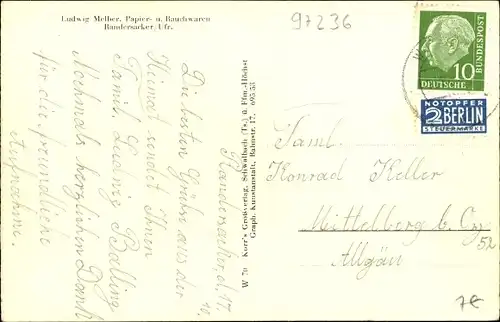 Ludwig Melber, Papier- u. Rauchwaren
Randersacker/Ufr.
97236
Randersackerd, 17.
10.
Die besten Grüße aus der
Heimat sendet Ihnen
Famil. Ludwig Balling
Nochmals herzlichen Dank
für die freundliche
Aufnahme.
W 70 Korr's Großverlag, Schwalbach (Ts.) ü. Ffm.-Höchst
Graph. Kunstanstalt, Bahnstr. 17,
DEUTSCHE
BUNDESPOST
10
NOTOPFER
2 BERLIN
STEUERMARKE
Faml.
Konrad Keller
Mittelberg b. Oy
52
Allgäu
7€